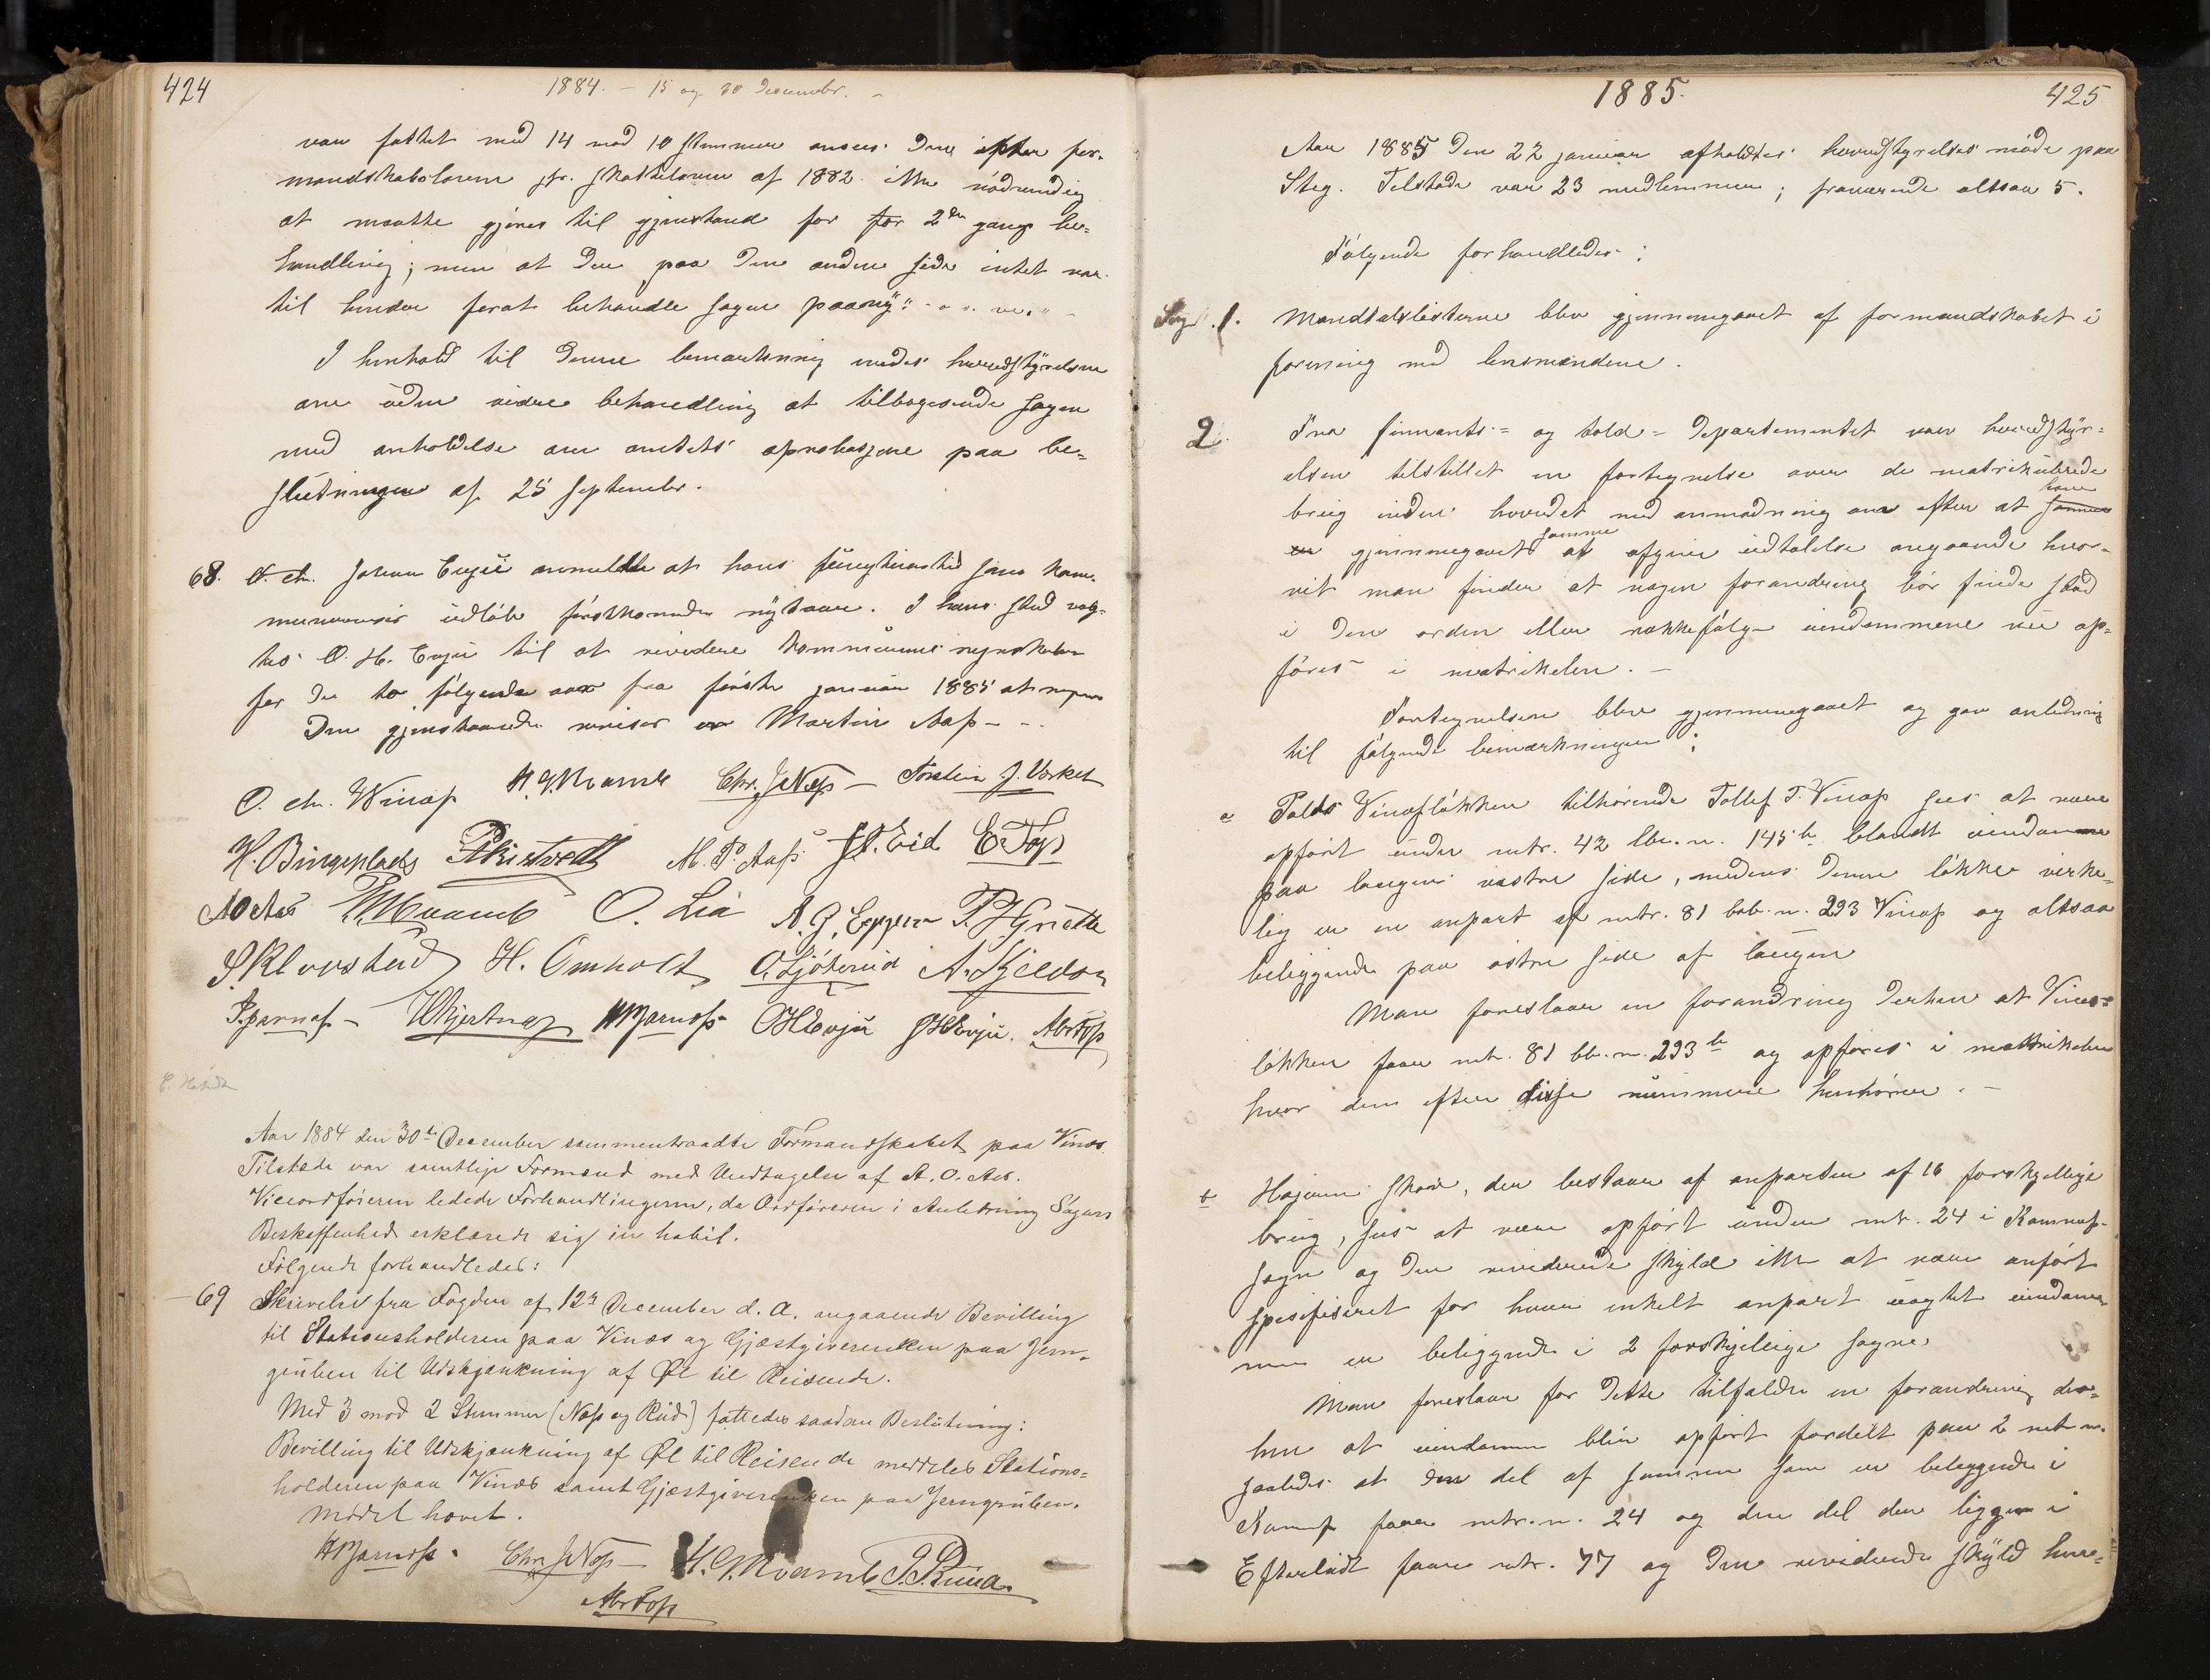 424
1884. – 15 og 30 December. –
var fattet med 14 mod 10 stemmer ansees den ifølge for-
mandskabsloven jfr. skatteloven af 1882 ikke nödvendig
at maatte gjöres til gjenstand for for 2den gangs be-
handling; men at der paa den anden side intet var
til hinder forat behandle sagen paany"
I henhold til denne bemærkning vedtoges herredstyrelsen
uden videre behandling at tilbagesende sagen
med anholdelse om amtets approbasjon paa be-
slutningen af 25 september.
68. Johan Evju anmeldte at hans funktionstid som kom-
munerevisor udlöb förstkommende nytaar. I hans sted valg-
tes O. H. Evju til at revidere kommunens regnskaber
for de to fölgende aar fra förste januar 1885 at regne
Den gjenstaaende revisor er Martin Aas – -
O. Chr. Winæs H. G. Kvamb Chr. J. Næss – Torstein J. Verket
H. Bingeplads P. Kirstvedt M. P. Aass J. T. Eid E. Foss
A O Aas Kvamb O. Lia A. G. Eggen P. J. Grette
S. Klovstad H. Omholt O. Sjöterud A. Kjeldsen
P. Jarnæss – Hjertnæs H Jarnæss O H Evju J H Evju. Abr Foss
Aar 1884 den 30te December sammentraadte Formandskabet paa Vinæs.
Tilstede var samtlige Formænd med Undtagelse af A. O. Aas.
Viceordföreren ledede Forhandlingerne, da Ordföreren i Anledning Sagens
Beskaffenhed erklærede sig in habil.
Fölgende forhandledes:
69 Skrivelse fra Fogden af 12te December d. A. angaaende Bevilling
til Stationsholderen paa Vinæs og Gjæstgiverenken paa Jern-
gruben til Udskjænkning af Øl til Reisende.
Med 3 mod 2 Stemmer (Næss og Ruud) fattedes saadan Beslutning:
Bevilling til Udskjænkning af Øl til Reisende meddeles Stations-
holderen paa Vinæs samt Gjæstgiverenken paa Jerngruben.
Mödet hævet.
H Jarnæss. Chr. J. Næss – H. G. Kvamb P. Ruud.
Abr Foss
1885.
425
Aar 1885 den 22 januar afholdtes herredstyrelses möde paa
Steg. Tilstede var 23 medlemmer; fraværende altsaa 5.
Fölgende forhandledes:
Sag. 1. Mandtalslisterne blev gjennemgaaet af formandskabet i
forening med lensmændene.
2. Fra finnants- og told-Departementet var herredstyr-
elsen tilstillet en fortegnelse over de matrikulerede
brug inden herredet med anmodning om efter at have
samme
gjennemgaaet at afgive udtalelse angaaende hvor-
vit man finder at nogen forandring bör finde sted
i den orden eller rækkefölge eiendommene nu op-
föres i matrikelen. –
Fortegnelsen blev gjennemgaaet og gav anledning
til fölgende bemærkninger:
a Vinæslökken tilhörende Tollef T. Vinæs sees at være
opfört under mtr. 42 lbn. n. 145 b blandt eiendomme
paa laagens vestre side, medens denne lökke virke-
lig er en anpart af mtr. 81 lnb. n. 293 Vinæs og altsaa
beliggende paa östre side af laagen
Man foreslaar en forandring derhen at Vinæs-
lökken faar mtr. 81 lb. n. 293 b og opföres i matrikelen
hvor den efter disse numere henhörer. –
b Skov, der bestaar af anparter af 16 forskjellige
brug, sees at være opfört under mtr. 24 i Komnæs-
sogn og den reviderede skyld ikke at være anfört
spesifiseret for hver enkelt anpart uagtet eiendom-
men er beliggende i 2 forskjellige sogne.
Man foreslaar for dette tilfælde en forandring der-
hen at eiendommen blir opfört fordelt paa 2 mtr n.
saaledes at den del af sammen som er beliggende i
Komnæs faar mtr. n. 24 og den del der ligger i
Efterlödt faar mtr. 77 og den reviderede skyld hver-